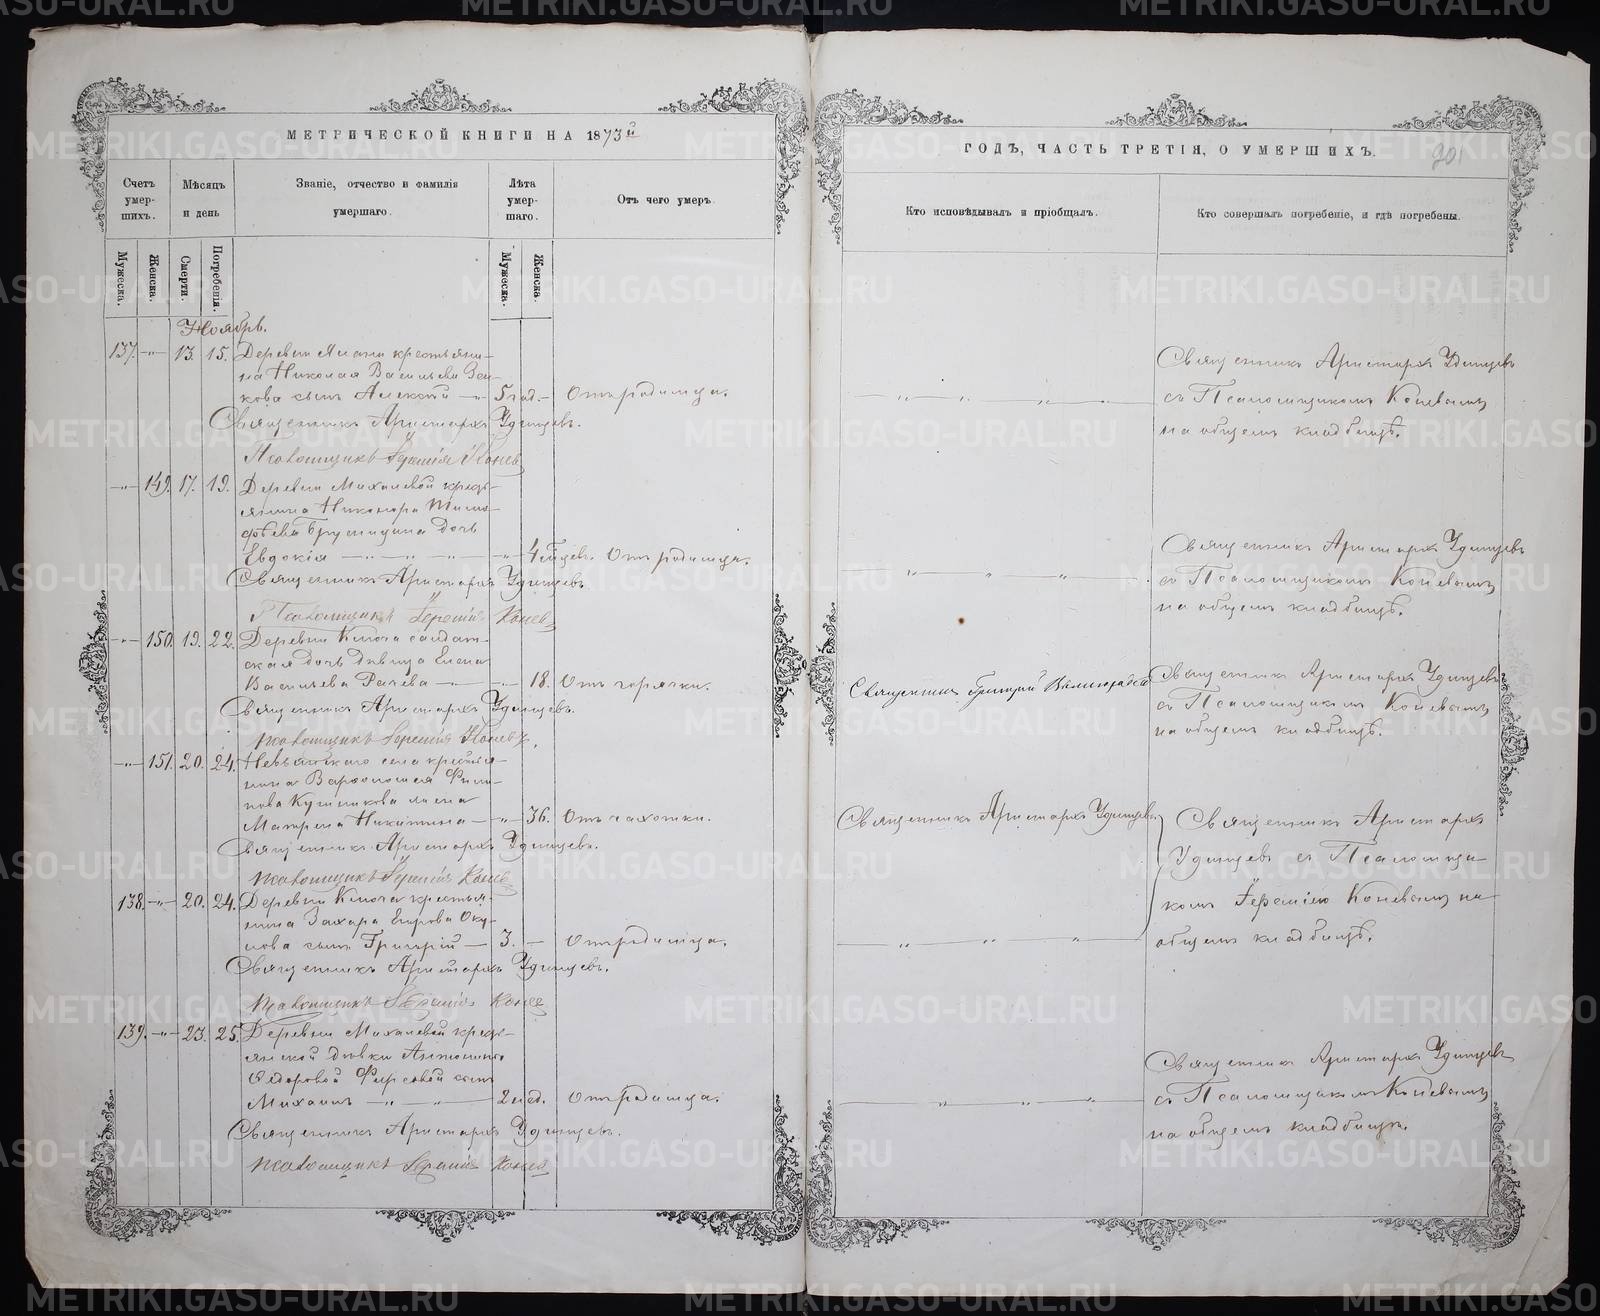 МЕТРИЧЕСКОЙ КНИГИ НА 1873й
ГОДЪ, ЧАСТЬ ТРЕТІЯ, О УМЕРШИХЪ.
201
Счетъ умер-шихъ.
Мѣсяцъ и день
Званіе, отчество и фамилія умершаго.
Лѣта умер-шаго.
Отъ чего умеръ.
Кто исповѣдывалъ и пріобщалъ.
Кто совершалъ погребеніе, и гдѣ погребены.
Мужеска.
Женска.
Смерти.
Погребенія.
Мужеска.
Женска.
Ноябрь.
137. -„- 13. 15. Деревни крестьяни-
на Николая Васильева
кова сынъ Алексѣй -„- 5 год. - Отъ родимца.
Священникъ Аристархъ Удинцевъ.
Псаломщикъ Іеремія Коневъ
Священникъ Аристархъ Удинцевъ
съ Псаломщикомъ Коневымъ
на общемъ кладбищѣ.
-„- 149. 17. 19. Деревни Михалевой кресть-
янина Никонора Тимо-
фѣева Брусницина дочь
Евдокія -„- -„- -„- 4 мѣсяц. Отъ родимца.
Священникъ Аристархъ Удинцевъ
Псаломщикъ Іеремія Коневъ
Священникъ Аристархъ Удинцевъ
съ Псаломщикомъ Коневымъ
на общемъ кладбищѣ.
-„- 150. 19. 22. Деревни Ключа солдат-
ская дочь дѣвица Елена
Васильева Рачева -„- -„- 18. Отъ горячки.
Священникъ Аристархъ Удинцевъ.
Псаломщикъ Іеремія Коневъ.
Священникъ Григорій
Священникъ Аристархъ Удинцевъ
съ Псаломщикомъ Коневымъ
на общемъ кладбищѣ.
-„- 151. 20. 24. Невьянскаго села крестья-
нина Варѳоломея Филип-
пова жена
Матрена Никитина -„- 36. Отъ чахотки.
Священникъ Аристархъ Удинцевъ.
Псаломщикъ Іеремія Коневъ
Священникъ Аристархъ Удинцевъ
Священникъ Аристархъ
Удинцевъ съ Псаломщи-
комъ Іереміею Коневымъ на
общемъ кладбищѣ.
138. -„- 20. 24. Деревни Ключа крестья-
нина Захара Егорова Оку-
лова сынъ Григорій - 3. - Отъ родимца.
Священникъ Аристархъ Удинцевъ.
Псаломщикъ Іеремія Коневъ
139. -„- 23. 25. Деревни Михалевой кресть-
янской дѣвки Антонины
Ѳедоровой Фирсовой сынъ
Михаилъ -„- -„- 2 нед. Отъ родимца.
Священникъ Аристархъ Удинцевъ.
Псаломщикъ Іеремія Коневъ
Священникъ Аристархъ Удинцевъ
съ Псаломщикомъ Коневымъ
на общемъ кладбищѣ.
METRIKI.GASO-URAL.RU